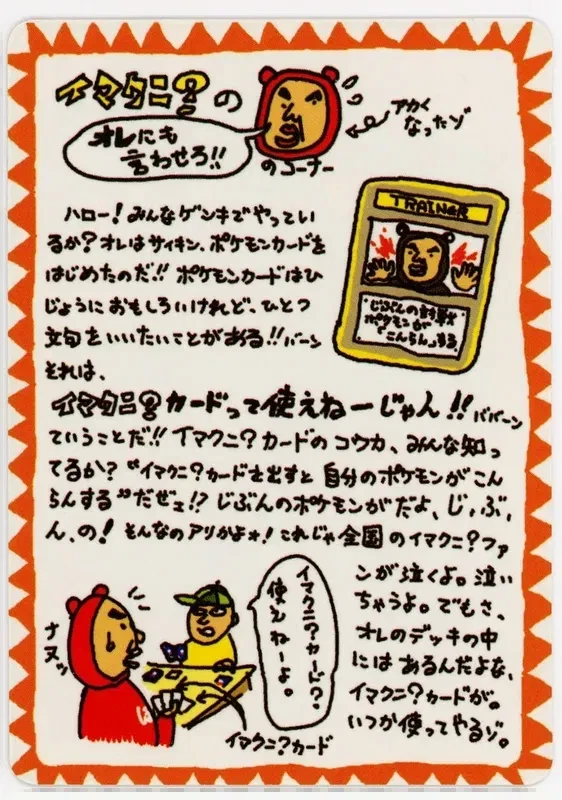 イマクニ?の
オレにも
言わせろ!!
のコーナー
アカく
なったゾ
ハロー!みんなゲンキでやってい
るか?オレはサイキン、ポケモンカードを
はじめたのだ!!ポケモンカードはひ
じょうにおもしろいけれど、ひとつ
文句をいいたいことがある!!バーン
それは、
TRAINER
じぶんの対戦
ポケモンが
「こんらん」する。
イマクニ?カードって使えねーじゃん!!ババーン
ていうことだ!!イマクニ?カードのコウカ、みんな知っ
てるか?"イマクニ?カードを出すと自分のポケモンがこん
らんする"だぜェ!?じぶんのポケモンがだよ、じ、ぶ、
ん、の!そんなのアリかよォ!これじゃ全国のイマクニ?ファ
ンが泣くよ。泣い
ちゃうよ。でもさ、
オレのデッキの中
にはあるんだよな、
イマクニ?カードが。
いつか使ってやるゾ。
イマクニ?カード?
使えねーよ。
ナヌッ
イマクニ?カード